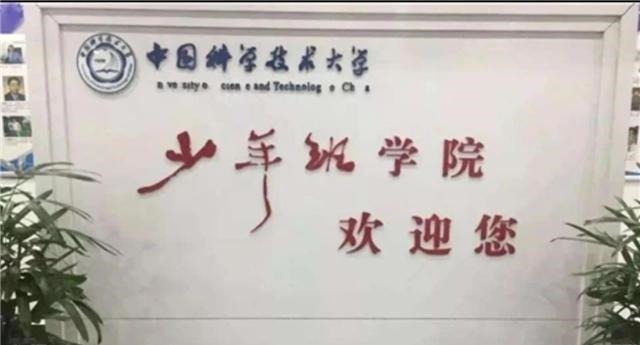 中国科学技术大学
n ve s ty o  c en e and Technolog  o  Ch  a
少年班学院
欢迎您